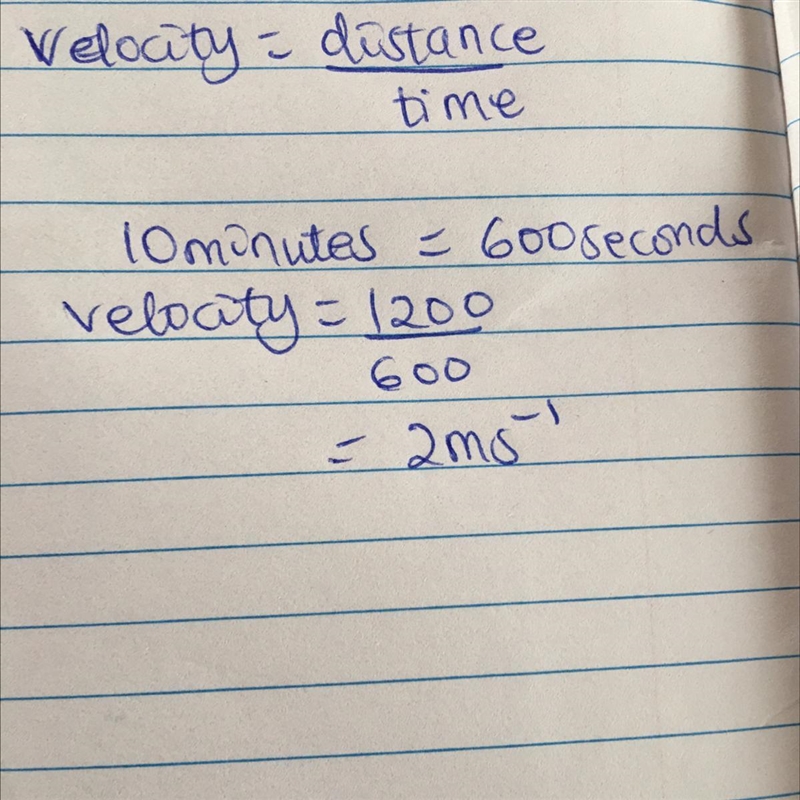 Velocity = distance
time
10minutes = 600seconds
velocity = 1200
600
= 2ms⁻¹